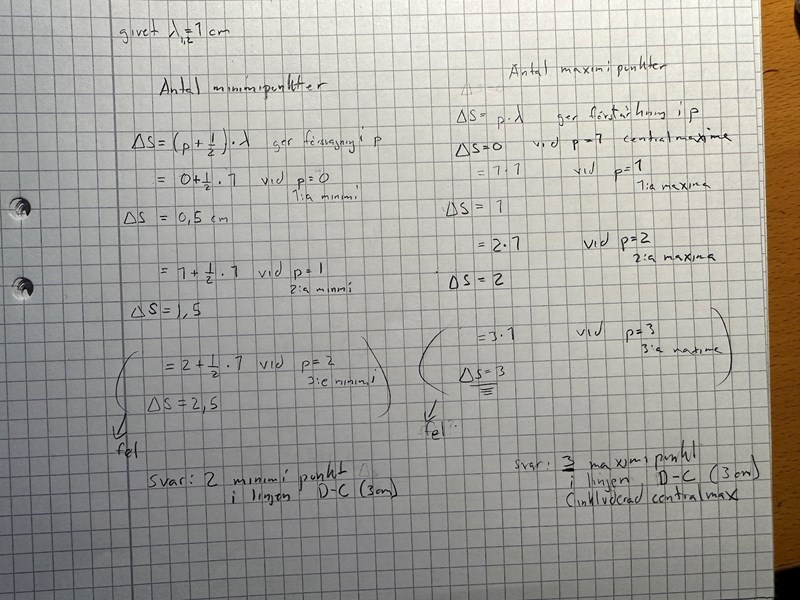 givet λ1,2=1 cm
Antal minimipunkter
ΔS=(p+1/2)·λ ger försvagning i p
= 0+1/2·1 vid p=0
1:a minimi
ΔS = 0,5 cm
= 1+1/2·1 vid p=1
2:a minmi
ΔS=1,5
= 2+1/2·1 vid p=2
3:e minimi
ΔS=2,5
fel
svar: 2 minimi punkt
i linjen D-C (3cm)
Antal maximi punkter
ΔS= p·λ ger förstärkning i p
ΔS=0 vid p=1 centralmaxima
=1·1 vid p=1
1:a maxima
ΔS= 1
=2·1 vid p=2
2:a maxima
ΔS = 2
=3·1 vid p=3
3:a maxima
ΔS=3
fel
svar: 3 maximi punkt
i linjen D-C (3cm)
(inkluderad centralmax